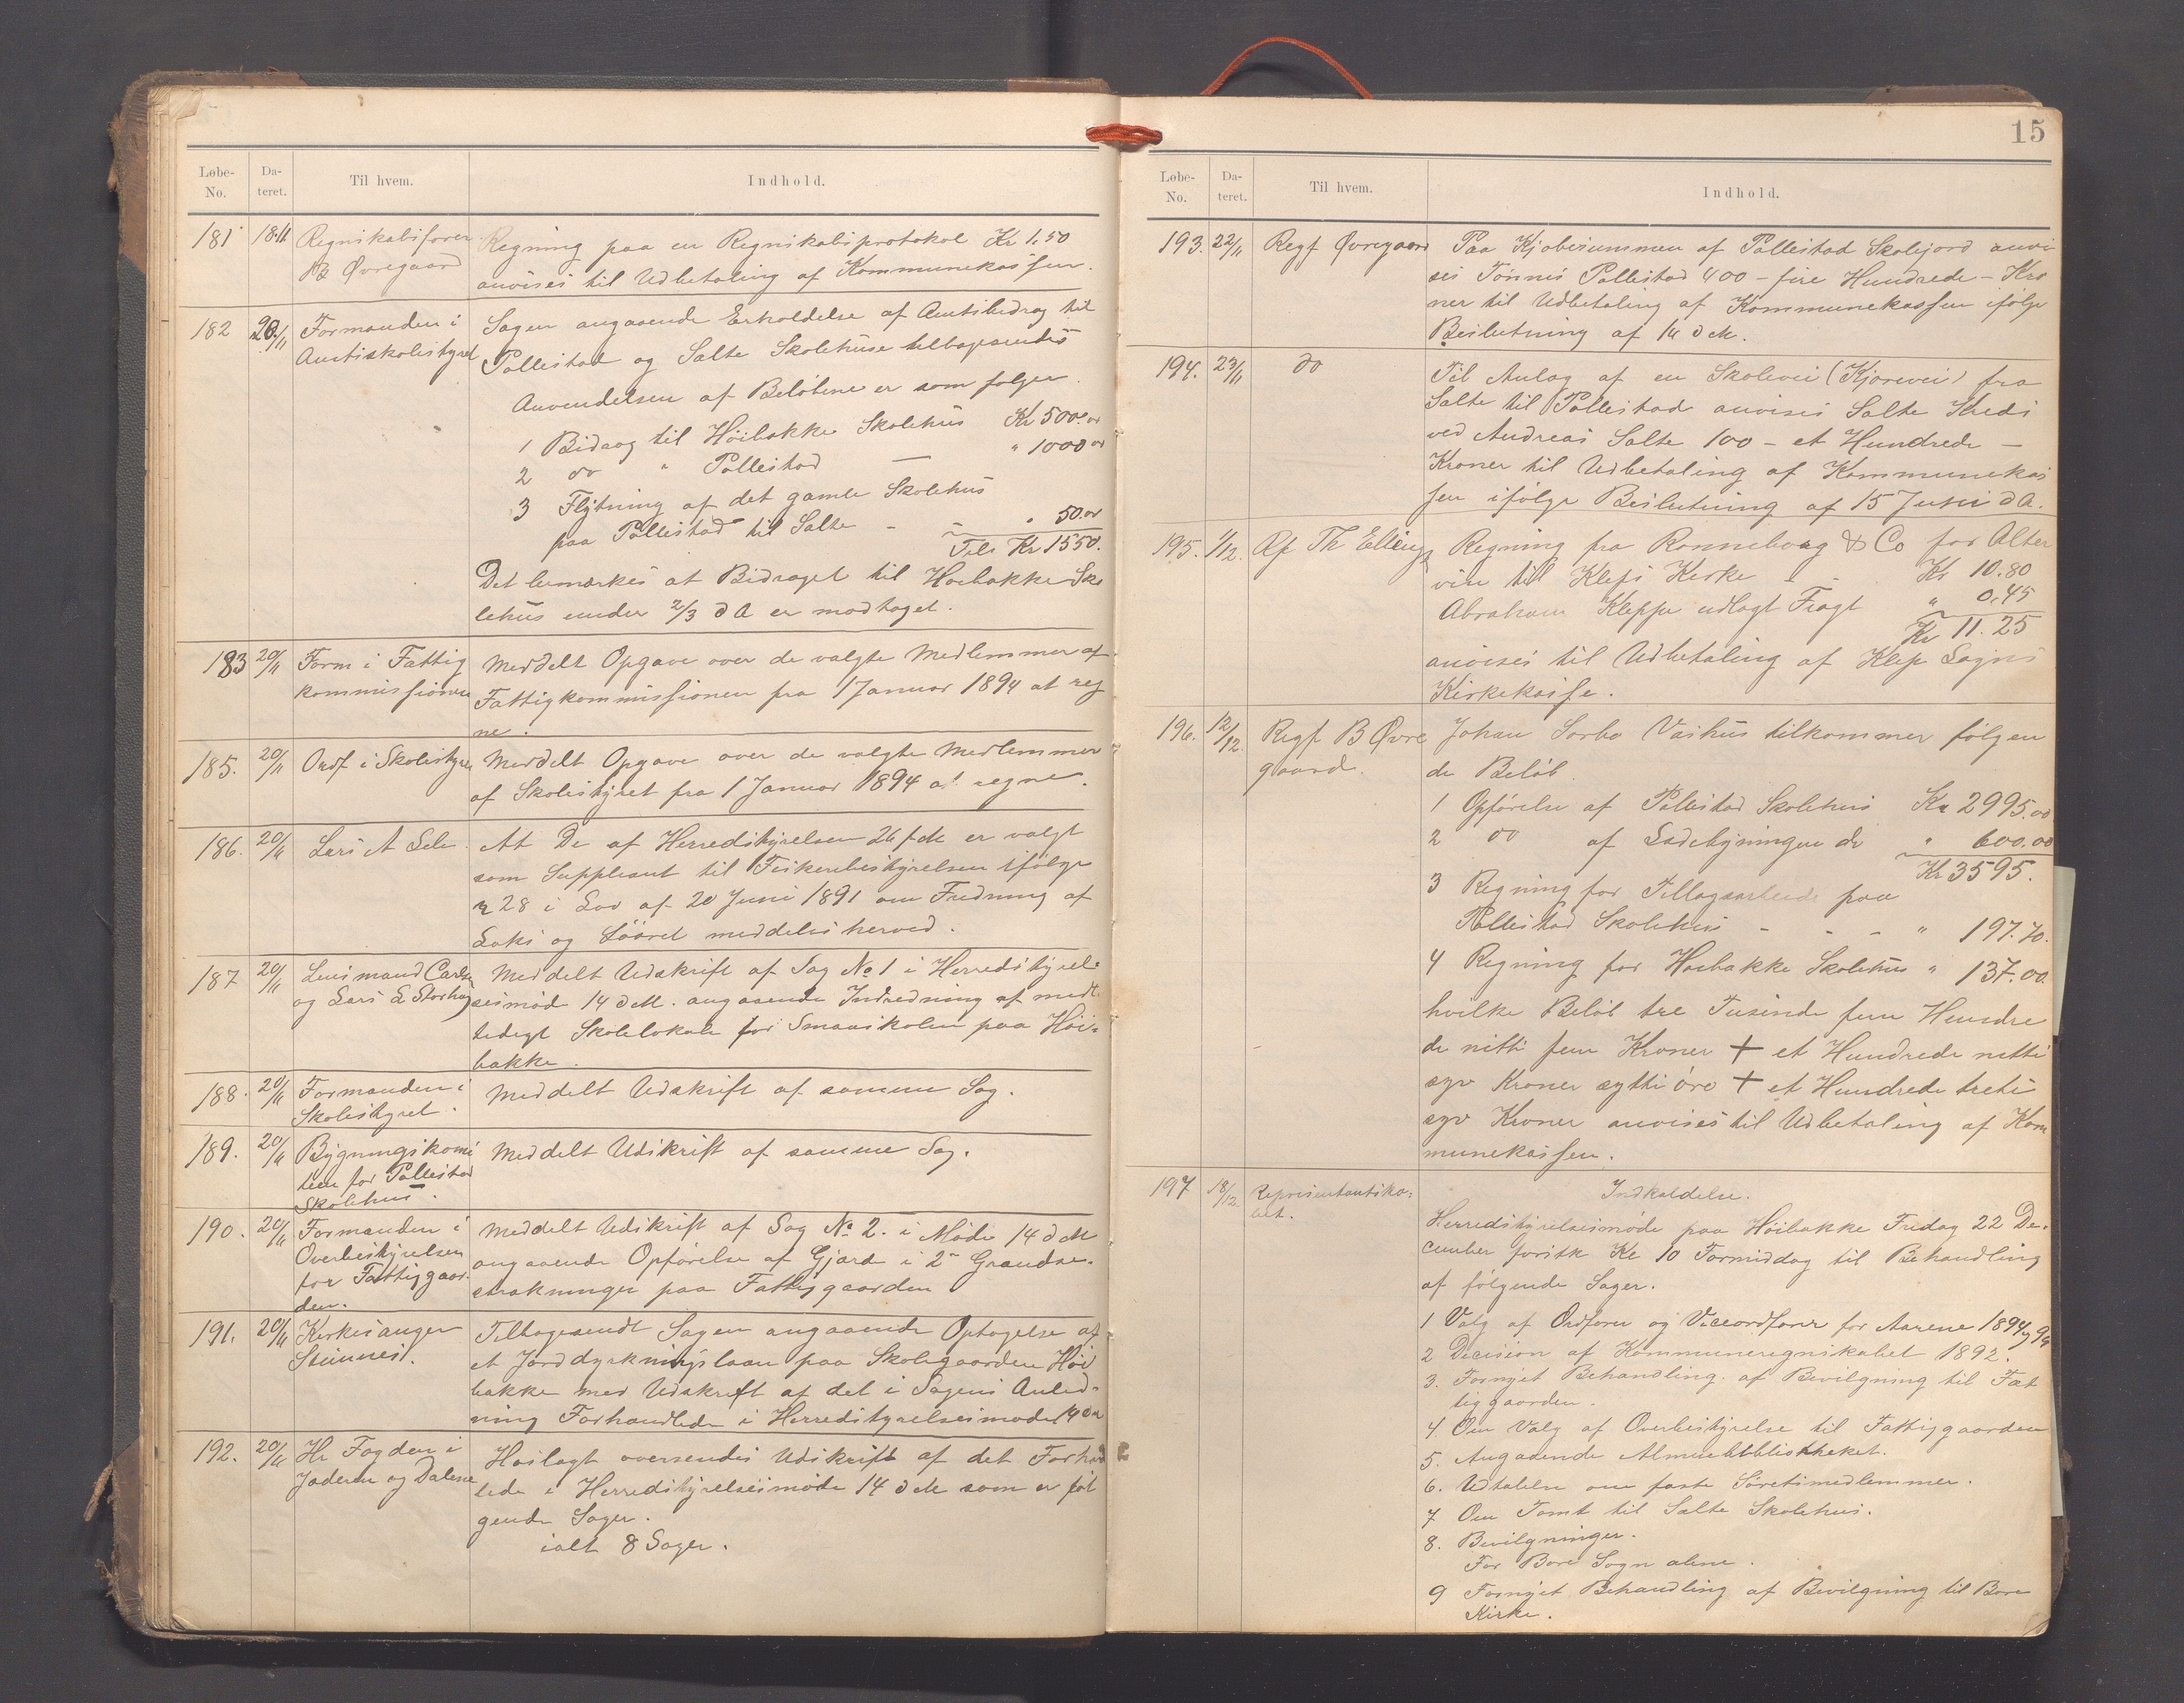 Løbe-No. Da-teret. Til hvem. Indhold.
181 18/11 Regnskabsfører Regning paa en Regnskabsprotokol Kr 1.50
B Øvregaard anvises til Udbetaling af Kommunekassen.
182 20/11 Formanden i Sagen angaaende Erholdelse af Amtsbidrag til
Amtsskolestyret Pollestad og Salte Skolehuse
Anvendelsen af Beløbene er som følger
1 Bidrag til Höibakke Skolehus Kr 500.00
2 do " Pollestad — " 1000.00
3 Flytning af det gamle Skolehus
paa Pollestad til Salte - - " 50.00
Tils Kr 1550.
Det bemærkes at Bidraget til Hoebakke Sko
lehus under 2/3 d A er modtaget.
183 20/11 Form i Fattig Meddelt Opgave over de valgte Medlemmer af
kommissionen Fattigkommissionen fra 1 Januar 1894 at reg
ne.
185. 20/11 Ordf i Skolestyre Meddelt Opgave over de valgte Medlemmer
af Skolestyret fra 1 Januar 1894 at regne.
186. 20/11 Lars A Sele. At De af Herredstyrelsen 26 f M er valgt
som Suppleant til Fiskeribestyrelsen ifølge
28 i Lov af 20 Juni 1891 om Fredning af
Laks og Sööret meddeles herved.
187 20/11 Lensmand Meddelt Udskrift af Sag No 1 i Herredstyrel-
og Lars L Storhaug sesmöde 14 d M. angaaende Indredning af midl
tidigt Skolelokale for Smaaskolen paa Höi-
bakke.
188. 20/11 Formanden i Meddelt Udskrift af samme Sag.
Skolestyret.
189. 20/11 Bygningskomi Meddelt Udskrift af samme Sag.
teen for Pollestad
Skolehus.
190. 20/11 Formanden i Meddelt Udskrift af Sag No 2. i Möde 14 d M
Overbestyrelsen angaaende Opförelse af Gjærde i 2
for Fattiggaar- strækninger paa Fattiggaarden
den.
191. 20/11 Kirkesanger Tilbagesendt Sagen angaaende Optagelse af
Stünnes. et Jorddyrkningslaan paa Skolegaarden Höi
bakke med Udskrift af det i Sagens Anled-
ning Forhandlede i Herredstyrelsesmøde 14 d M
192. 20/11 Hr Fogden i Hoslagt oversendes Udskrift af det Forhand
Jæderen og Dalene lede i Herredstyrelsesmöde 14 d M som er föl
gende Sager.
ialt 8 Sager.
15
Løbe-No. Da-teret. Til hvem. Indhold.
193. 22/11 Regf Øvregaard Paa Kjøbesummen af Pollestad Skolejord anvi
ses Tönnes Pollestad 400 - fire Hundrede - Kro
ner til Udbetaling af Kommunekassen ifølge
Beslutning af 14 d M.
194. 23/11 do Til Anlæg af en Skolevei (Kjørevei) fra
Salte til Pollestad anvises Salte Kreds
ved Andreas Salte 100 - et Hundrede -
Kroner til Udbetaling af Kommunekas
sen ifølge Beslutning af 15 Juni d A.
195. 1/12. Rf Th Regning fra Ronneborg & Co for Alter
vin til Kleps Kirke - - Kr 10.80
Abraham Kleppe udlagt Fragt " 0.45
Kr 11.25
anvises til Udbetaling af Klep Sogns
Kirkekasse.
196. 12/12. Regf B Øvre Johan Sorbo Vashus tilkommer følgen
gaard. de Beløb.
1 Opförelse af Pollestad Skolehus Kr 2995.00
2 do af Ladebygningen do " 600.00
Kr 3595.
3 Regning for Tillægsarbeide paa
Pollestad Skolehus - - - " 197.70.
4 Regning for Hoebakke Skolehus " 137.00
hvilke Beløb tre Tusinde fem Hundre
de nitti fem Kroner + et Hundrede nitti
syv Kroner sytti öre + et Hundrede treti
syv Kroner anvises til Udbetaling af Kom
munekassen.
197 18/12 Representantska- Indkaldelse.
bet. Herredstyrelsesmøde paa Höibakke Fredag 22 De-
cember førstk Kl 10 Formiddag til Behandling
af følgende Sager.
1 Valg af Ordfører og Viceordfører for Aarene 1894 og 95
2 Decision af Kommuneregnskabet 1892.
3. Fornyet Behandling af Bevilgning til Fat
tiggaarden.
4 Om Valg af Overbestyrelse til Fattiggaarden
5. Angaaende Almuebibliotheket.
6. Udtalelse om faste medlemmer.
7 Om Tomt til Salte Skolehus.
8. Bevilgninger.
For Bore Sogn alene.
9 Fornyet Behandling af Bevilgning til Bore
Kirke.